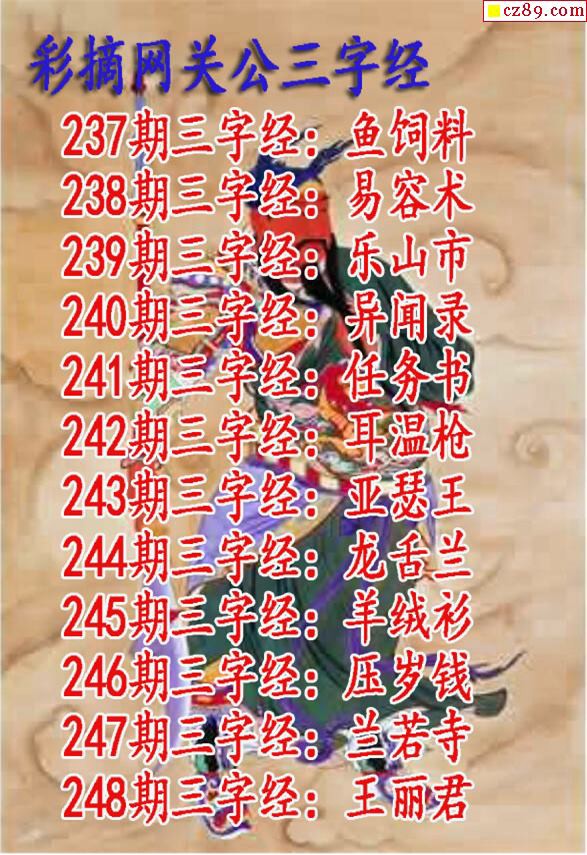 cz89.com
彩摘网关公三字经
237期三字经：鱼饲料
238期三字经：易容术
239期三字经：乐山市
240期三字经：异闻录
241期三字经：任务书
242期三字经：耳温枪
243期三字经：亚瑟王
244期三字经：龙舌兰
245期三字经：羊绒衫
246期三字经：压岁钱
247期三字经：兰若寺
248期三字经：王丽君